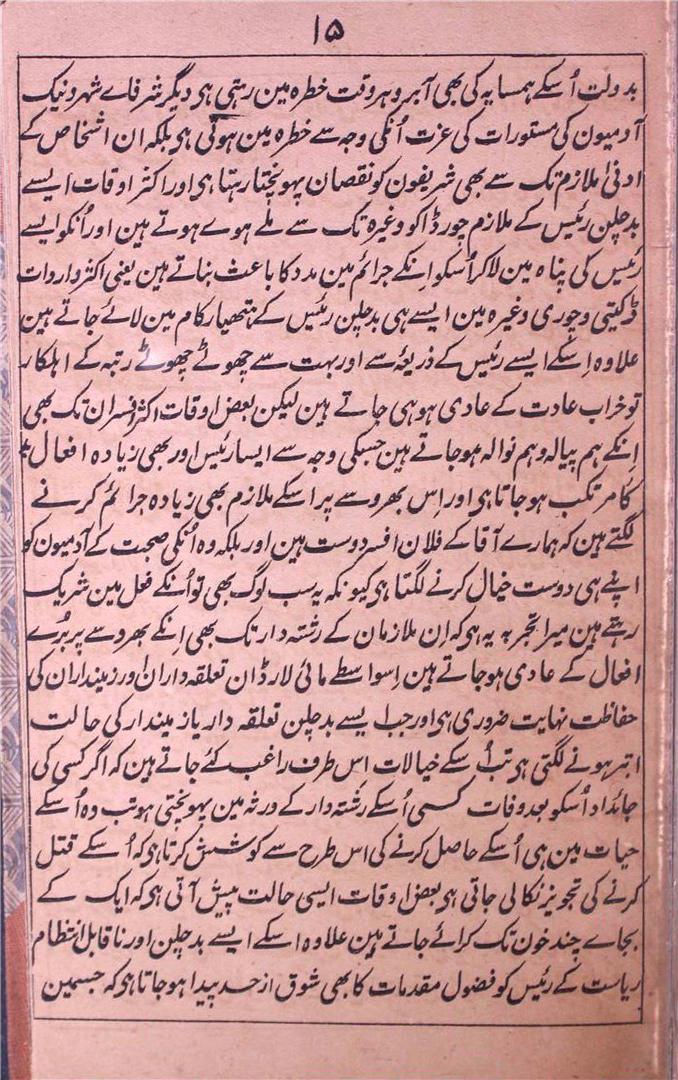 ۱۵
بدولت اُسکے ہمسایہ کی بھی آبرو ہر وقت خطرہ مین رہتی ہی دیگر شرفاے شہر و نیک
آدمیون کی مستورات کی عزت اُنکی وجہ سے خطرہ مین ہوتی ہی بلکہ ان اشخاص کے
ادنیٰ ملازم تک سے بھی شریفون کو نقصان پہونچتا رہتا ہی اور اکثر اوقات ایسے
بدچلن رئیس کے ملازم چور ڈاکو وغیرہ تک سے ملے ہوے ہوتے ہین اور اُنکو ایسے
رئیس کی پناہ مین لاکر اُسکو اِنکے جرائم مین مدد کا باعث بناتے ہین یعنی اکثر واردات
ڈکیتی و چوری وغیرہ مین ایسے ہی بدچلن رئیس کے ہتھیار کام مین لائے جاتے ہین
علاوہ اِسکے ایسے رئیس کے ذریعۂ سے اور بہت سے چھوٹے چھوٹے رتبہ کے اہلکار
تو خراب عادت کے عادی ہو ہی جاتے ہین لیکن بعض اوقات اکثر افسران تک بھی
اِنکے ہم پیالہ و ہم نوالہ ہوجاتے ہین جسکی وجہ سے ایسا رئیس اور بھی زیادہ افعال بد
کا مرتکب ہوجاتا ہی اور اِس بھروسے پر اسکے ملازم بھی زیادہ جرائم کرنے
لگتے ہین کہ ہمارے آقا کے فلان افسر دوست ہین اور بلکہ وہ اُنکی صحبت کے آدمیون کو
اپنے ہی دوست خیال کرنے لگتا ہی کیونکہ یہ سب لوگ بھی تو اُنکے فعل مین شریک
رہتے ہین میرا تجربہ یہ ہی کہ اِن ملازمان کے رشتہ دار تک بھی اِنکے بھروسے پر بُرے
افعال کے عادی ہوجاتے ہین اِسواسطے مائی لارڈ ان تعلقہ داران اور زمینداران کی
حفاظت نہایت ضروری ہی اور جب ایسے بدچلن تعلقہ دار یا زمیندار کی حالت
ابتر ہونے لگتی ہی تب اُسکے خیالات اس طرف راغب کئے جاتے ہین کہ اگر کسی کی
جائداد اُسکو بعد وفات کسی اُسکے رشتہ دار کے ورثہ مین پہونچتی ہو تب وہ اُسکے
حیات مین ہی اُسکے حاصل کرنے کی اس طرح سے کوشش کرتا ہی کہ اُسکے قتل
کرنے کی تجویز نکالی جاتی ہی بعض اوقات ایسی حالت پیش آتی ہی کہ ایک کے
بجاے چند خون تک کرائے جاتے ہین علاوہ اسکے ایسے بدچلن اور ناقابل انتظام
ریاست کے رئیس کو فضول مقدمات کا بھی شوق از حد پیدا ہوجاتا ہی کہ جسمین